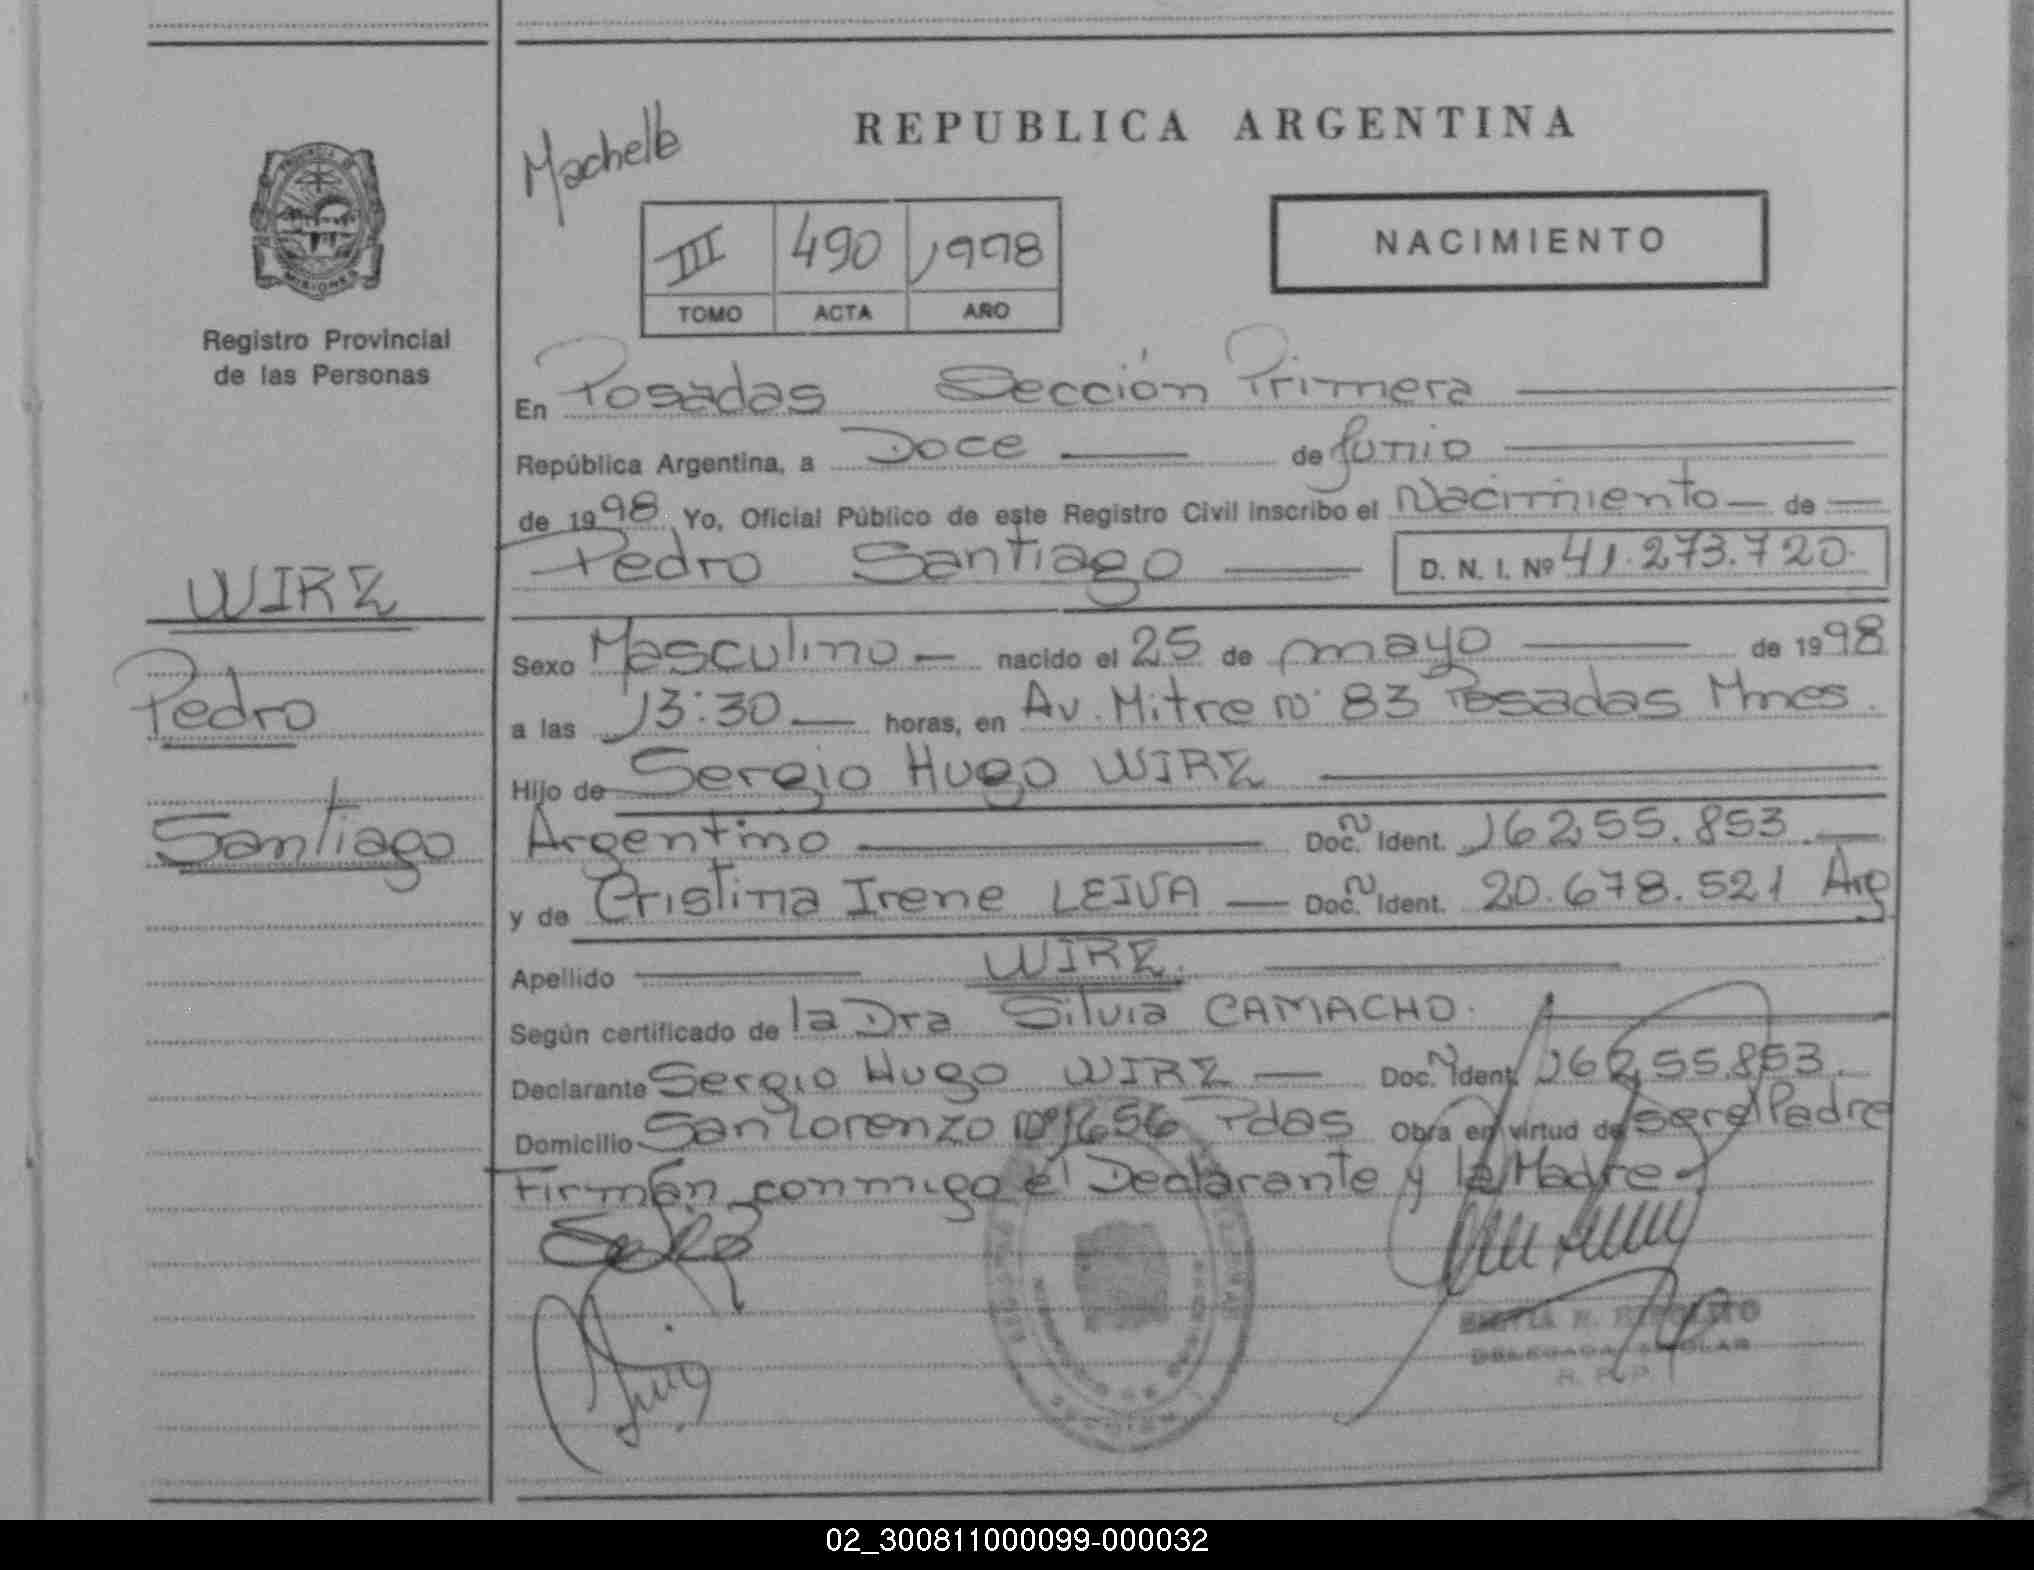 REPUBLICA ARGENTINA
NACIMIENTO
III 490 1998
TOMO ACTA AÑO
Registro Provincial
de las Personas
En Posadas Sección Primera
República Argentina, a Doce de Junio
de 1998 Yo, Oficial Público de este Registro Civil inscribo el Nacimiento de
Pedro Santiago D. N. I. Nº 41.273.720.
WIRZ
Pedro
Santiago
Sexo Masculino nacido el 25 de mayo de 1998
a las 13:30 horas, en Av. Mitre Nº 83 Posadas Mnes.
Hijo de Sergio Hugo WIRZ
Argentino Doc. Ident. 16255.853
y de Cristina Irene LEIVA Doc. Ident. 20.678.521 Arg
Apellido WIRZ.
Según certificado de la Dra Silvia CAMACHO.
Declarante Sergio Hugo WIRZ Doc. Ident. 16255.853.
Domicilio San Lorenzo Nº 1656 Pdas Obra en virtud de ser el Padre
Firman conmigo el Declarante y la Madre
R. P. P.
02_300811000099-000032